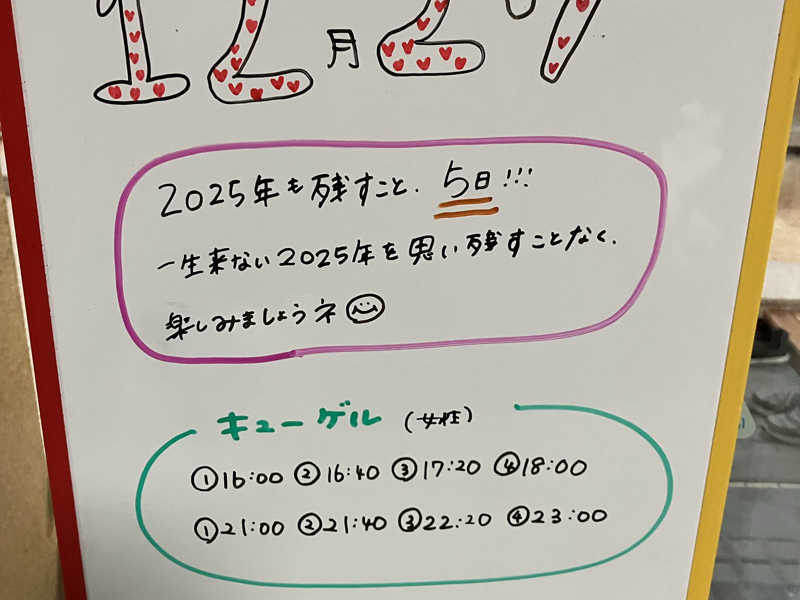 12月27
2025年も残すこと、5日!!!
一生来ない2025年を思い残すことなく、
楽しみましょうネ
キューゲル (女性)
①16:00 ②16:40 ③17:20 ④18:00
①21:00 ②21:40 ③22:20 ④23:00